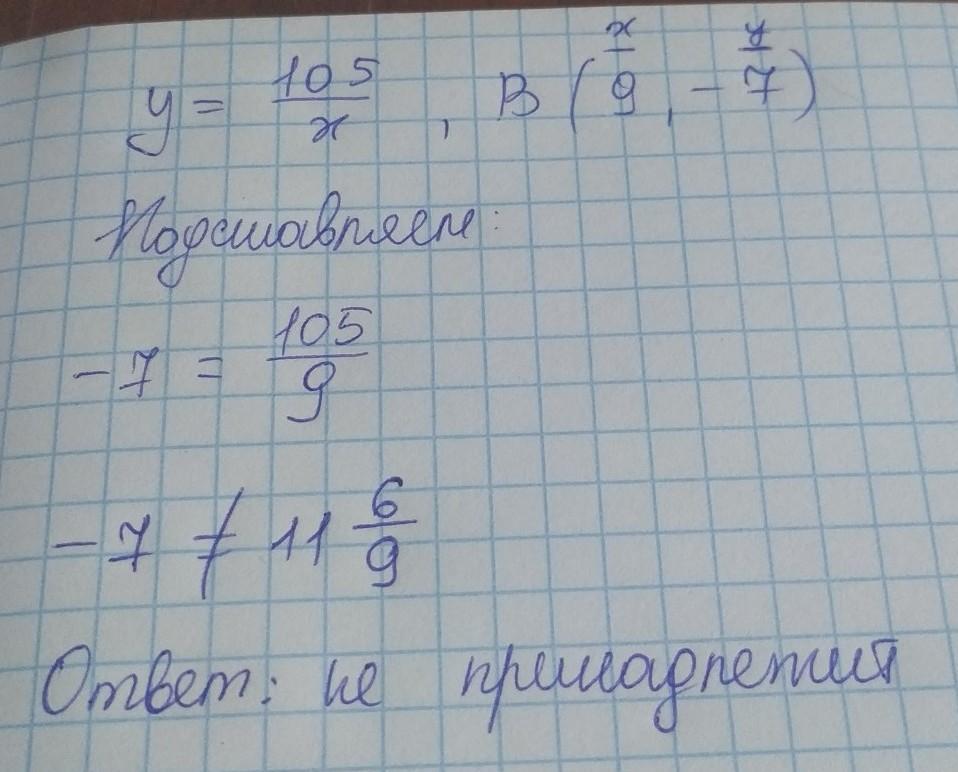 y = 105/x , B (9, -7)
x y
Подставляем:
-7 = 105/9
-7 ≠ 11 6/9
Ответ: не принадлежит